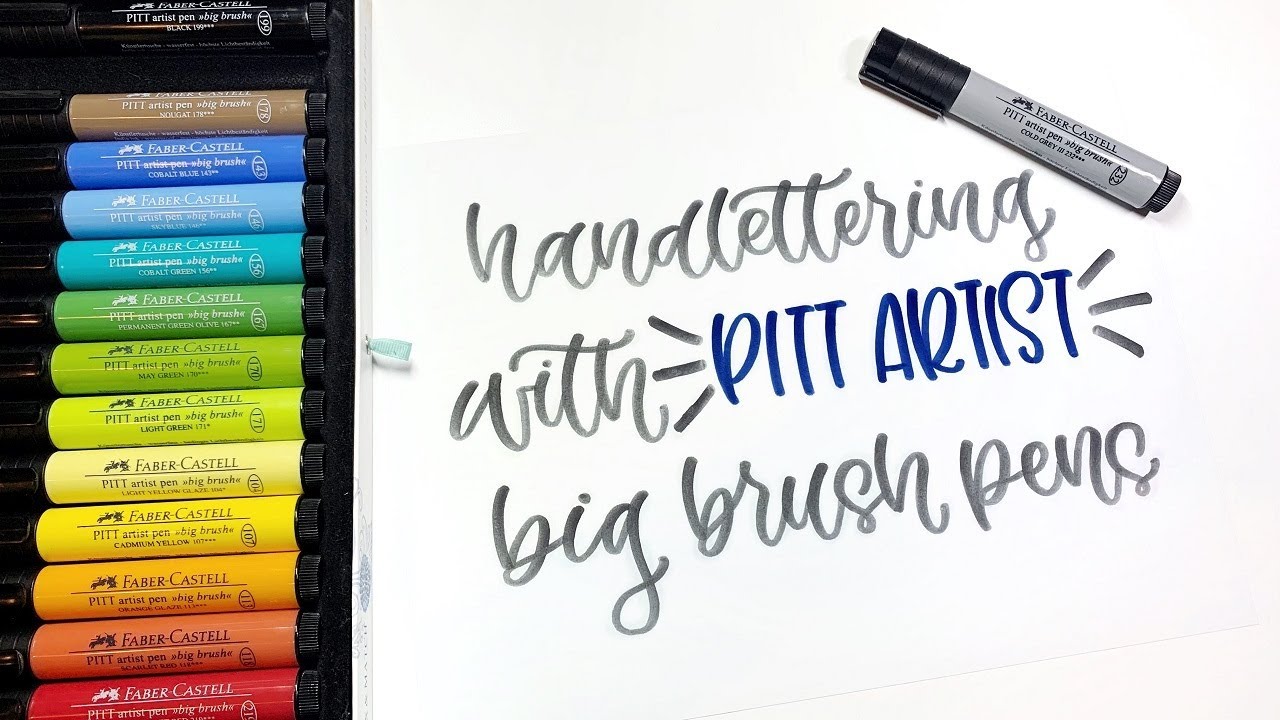 PITT artist pen »big brush«
BLACK 199***
199
Künstlertusche - wasserfest - höchste Lichtbeständigkeit
FABER-CASTELL
PITT artist pen »big brush«
NOUGAT 178***
178
Künstlertusche - wasserfest - höchste Lichtbeständigkeit
FABER-CASTELL
PITT artist pen »big brush«
COBALT BLUE 143**
143
FABER-CASTELL
PITT artist pen »big brush«
SKYBLUE 146**
146
FABER-CASTELL
PITT artist pen »big brush«
COBALT GREEN 156**
156
FABER-CASTELL
PITT artist pen »big brush«
PERMANENT GREEN OLIVE 167**
167
FABER-CASTELL
PITT artist pen »big brush«
MAY GREEN 170***
170
FABER-CASTELL
PITT artist pen »big brush«
LIGHT GREEN 171*
171
FABER-CASTELL
PITT artist pen »big brush«
LIGHT YELLOW GLAZE 104*
104
FABER-CASTELL
PITT artist pen »big brush«
CADMIUM YELLOW 107***
107
FABER-CASTELL
PITT artist pen »big brush«
ORANGE GLAZE 113***
113
FABER-CASTELL
PITT artist pen »big brush«
SCARLET RED 118***
118
FABER-CASTELL
PITT artist pen »big brush«
219
FABER-CASTELL
PITT artist pen »big brush«
COLD GREY III 232***
232
handlettering
with PITT ARTIST
big brush pens